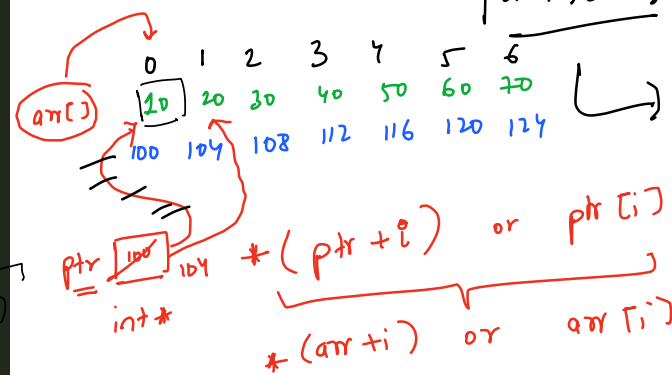 0 1 2 3 4 5 6
arr[] 10 20 30 40 50 60 70
100 104 108 112 116 120 124
ptr 100 104 *(ptr+i) or ptr[i]
int*
*(arr+i) or arr[i]